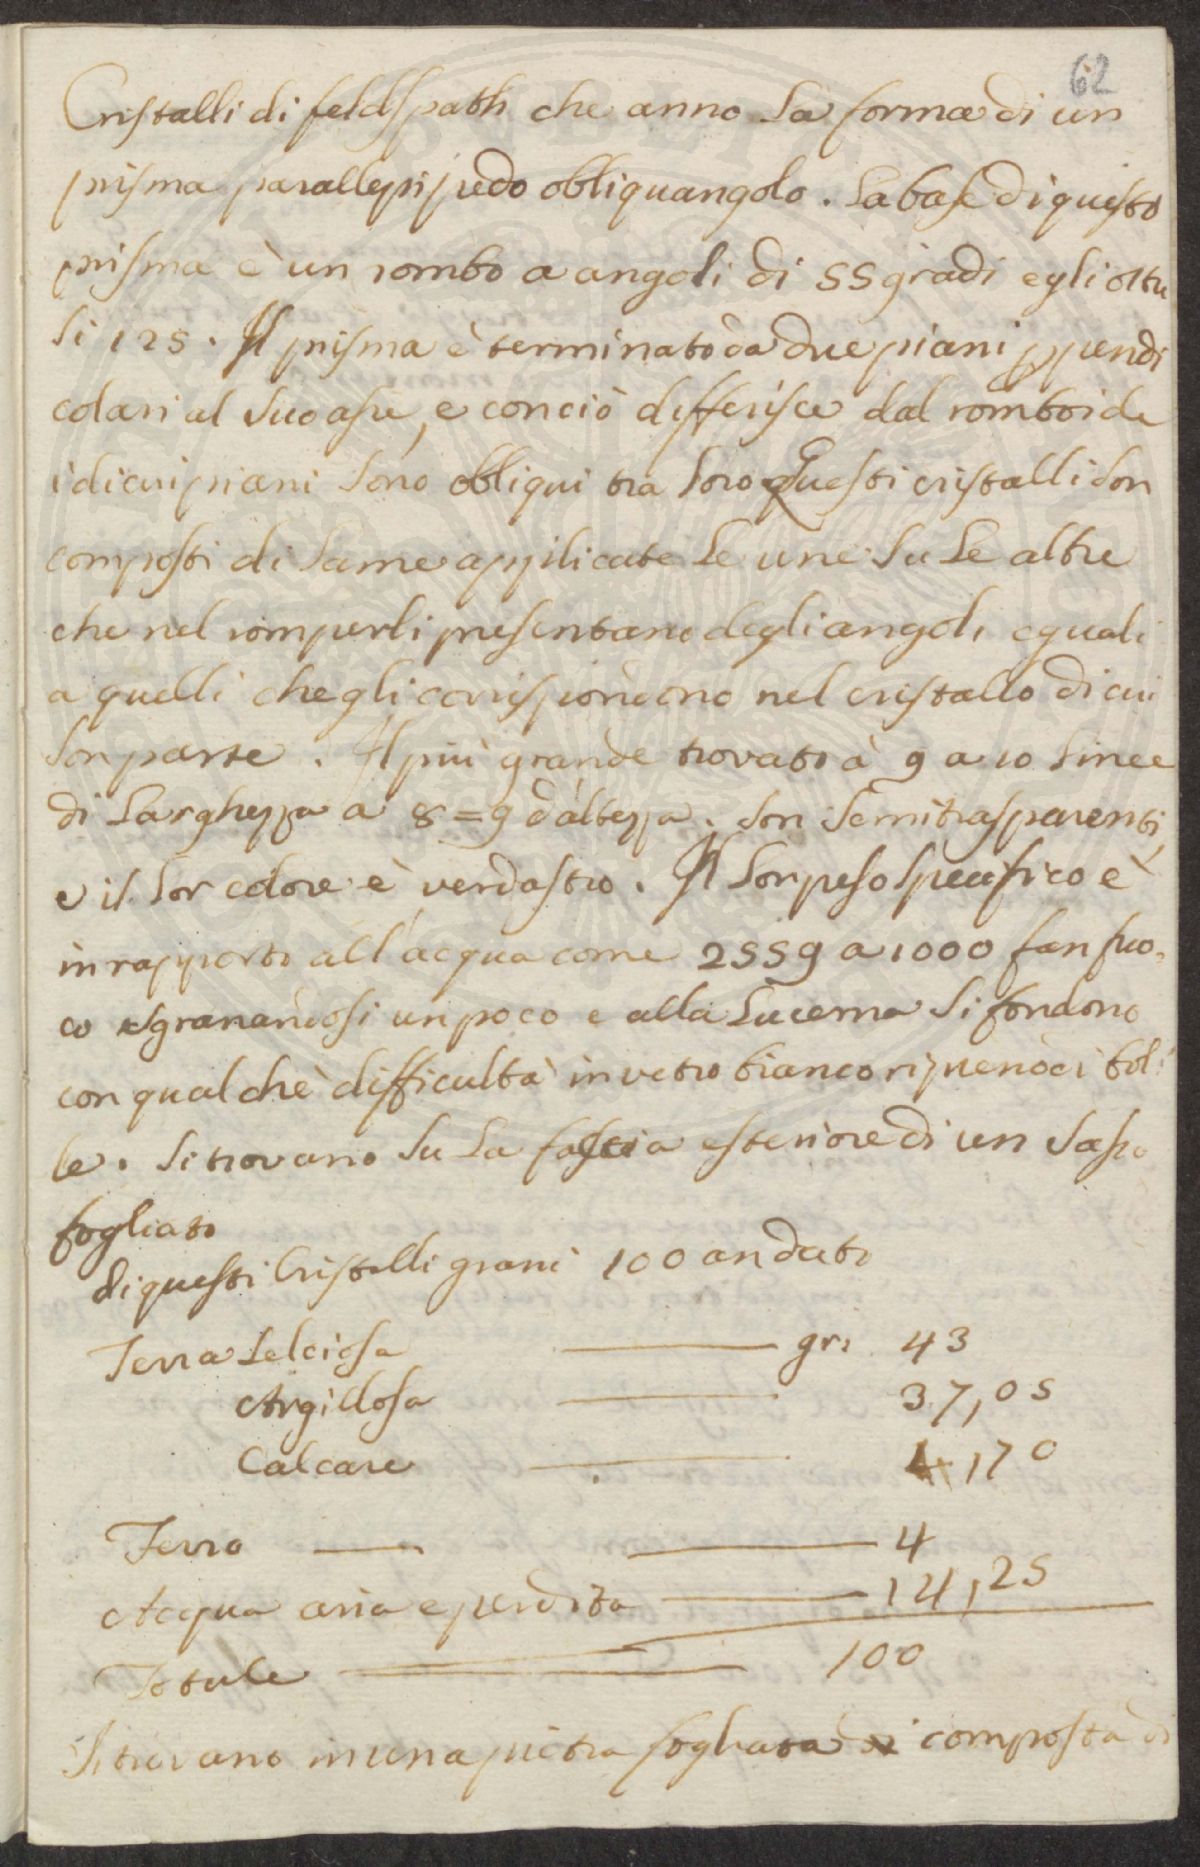 62
Cristalli di feldspath che anno la forma di un
prisma parallepipedo obliquangolo. La base di questo
prisma è un rombo a angoli di 55 gradi e gli ottu
si 125. Il prisma è terminato da due piani ppendi
colari al suo asse, e con ciò differisce dal romboide
i di cui piani sono obliqui tra loro Questi cristalli son
composti di lame applicate le une su le altre
che nel romperli presentano degli angoli eguali
a quelli che gli corrispondono nel cristallo di cui
son parte. Il più grande trovato à 9 a 10 linee
di larghezza a 8=9 d'altezza. Son semitrasparenti
e il lor colore è verdastro. Il lor peso specifico è
in rapporto all'acqua come 2559 a 1000 fan fuo-
co sgranandosi un poco e alla lucerna si fondono
con qualche difficultà in vetro bianco ripieno di bol
le. Si trovano su la faccia esteriore di un sasso
fogliato
di questi Cristalli grani 100 an dato
Terra Selciosa gri 43
Argillosa 37,05
Calcare 1,70
Ferro 4
Acqua aria e perdita 14,25
Totale 100
Si trovano in una pietra fogliata composta di